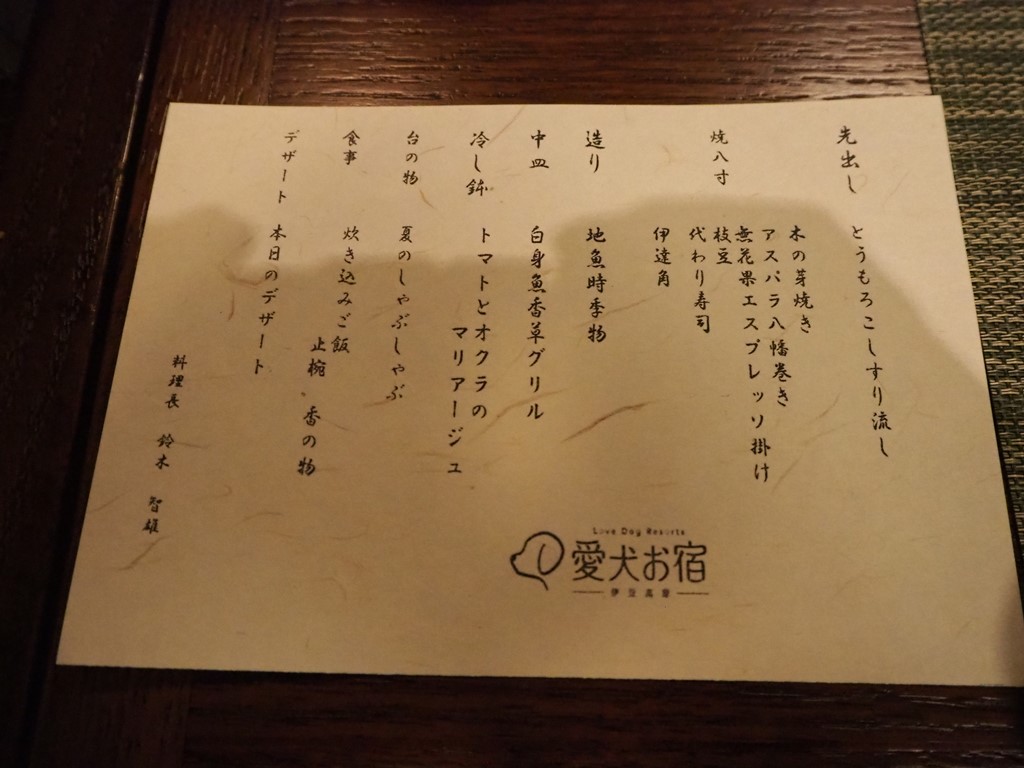 先出し
とうもろこしすり流し
焼八寸
木の芽焼き
アスパラ八幡巻き
無花果エスプレッソ掛け
枝豆
代わり寿司
伊達角
造り
地魚時季物
中皿
白身魚香草グリル
冷し鉢
トマトとオクラの
マリアージュ
台の物
夏のしゃぶしゃぶ
食事
炊き込みご飯
止椀 香の物
デザート
本日のデザート
料理長 鈴木 智雄
Love Dog Resorts
愛犬お宿
伊豆高原